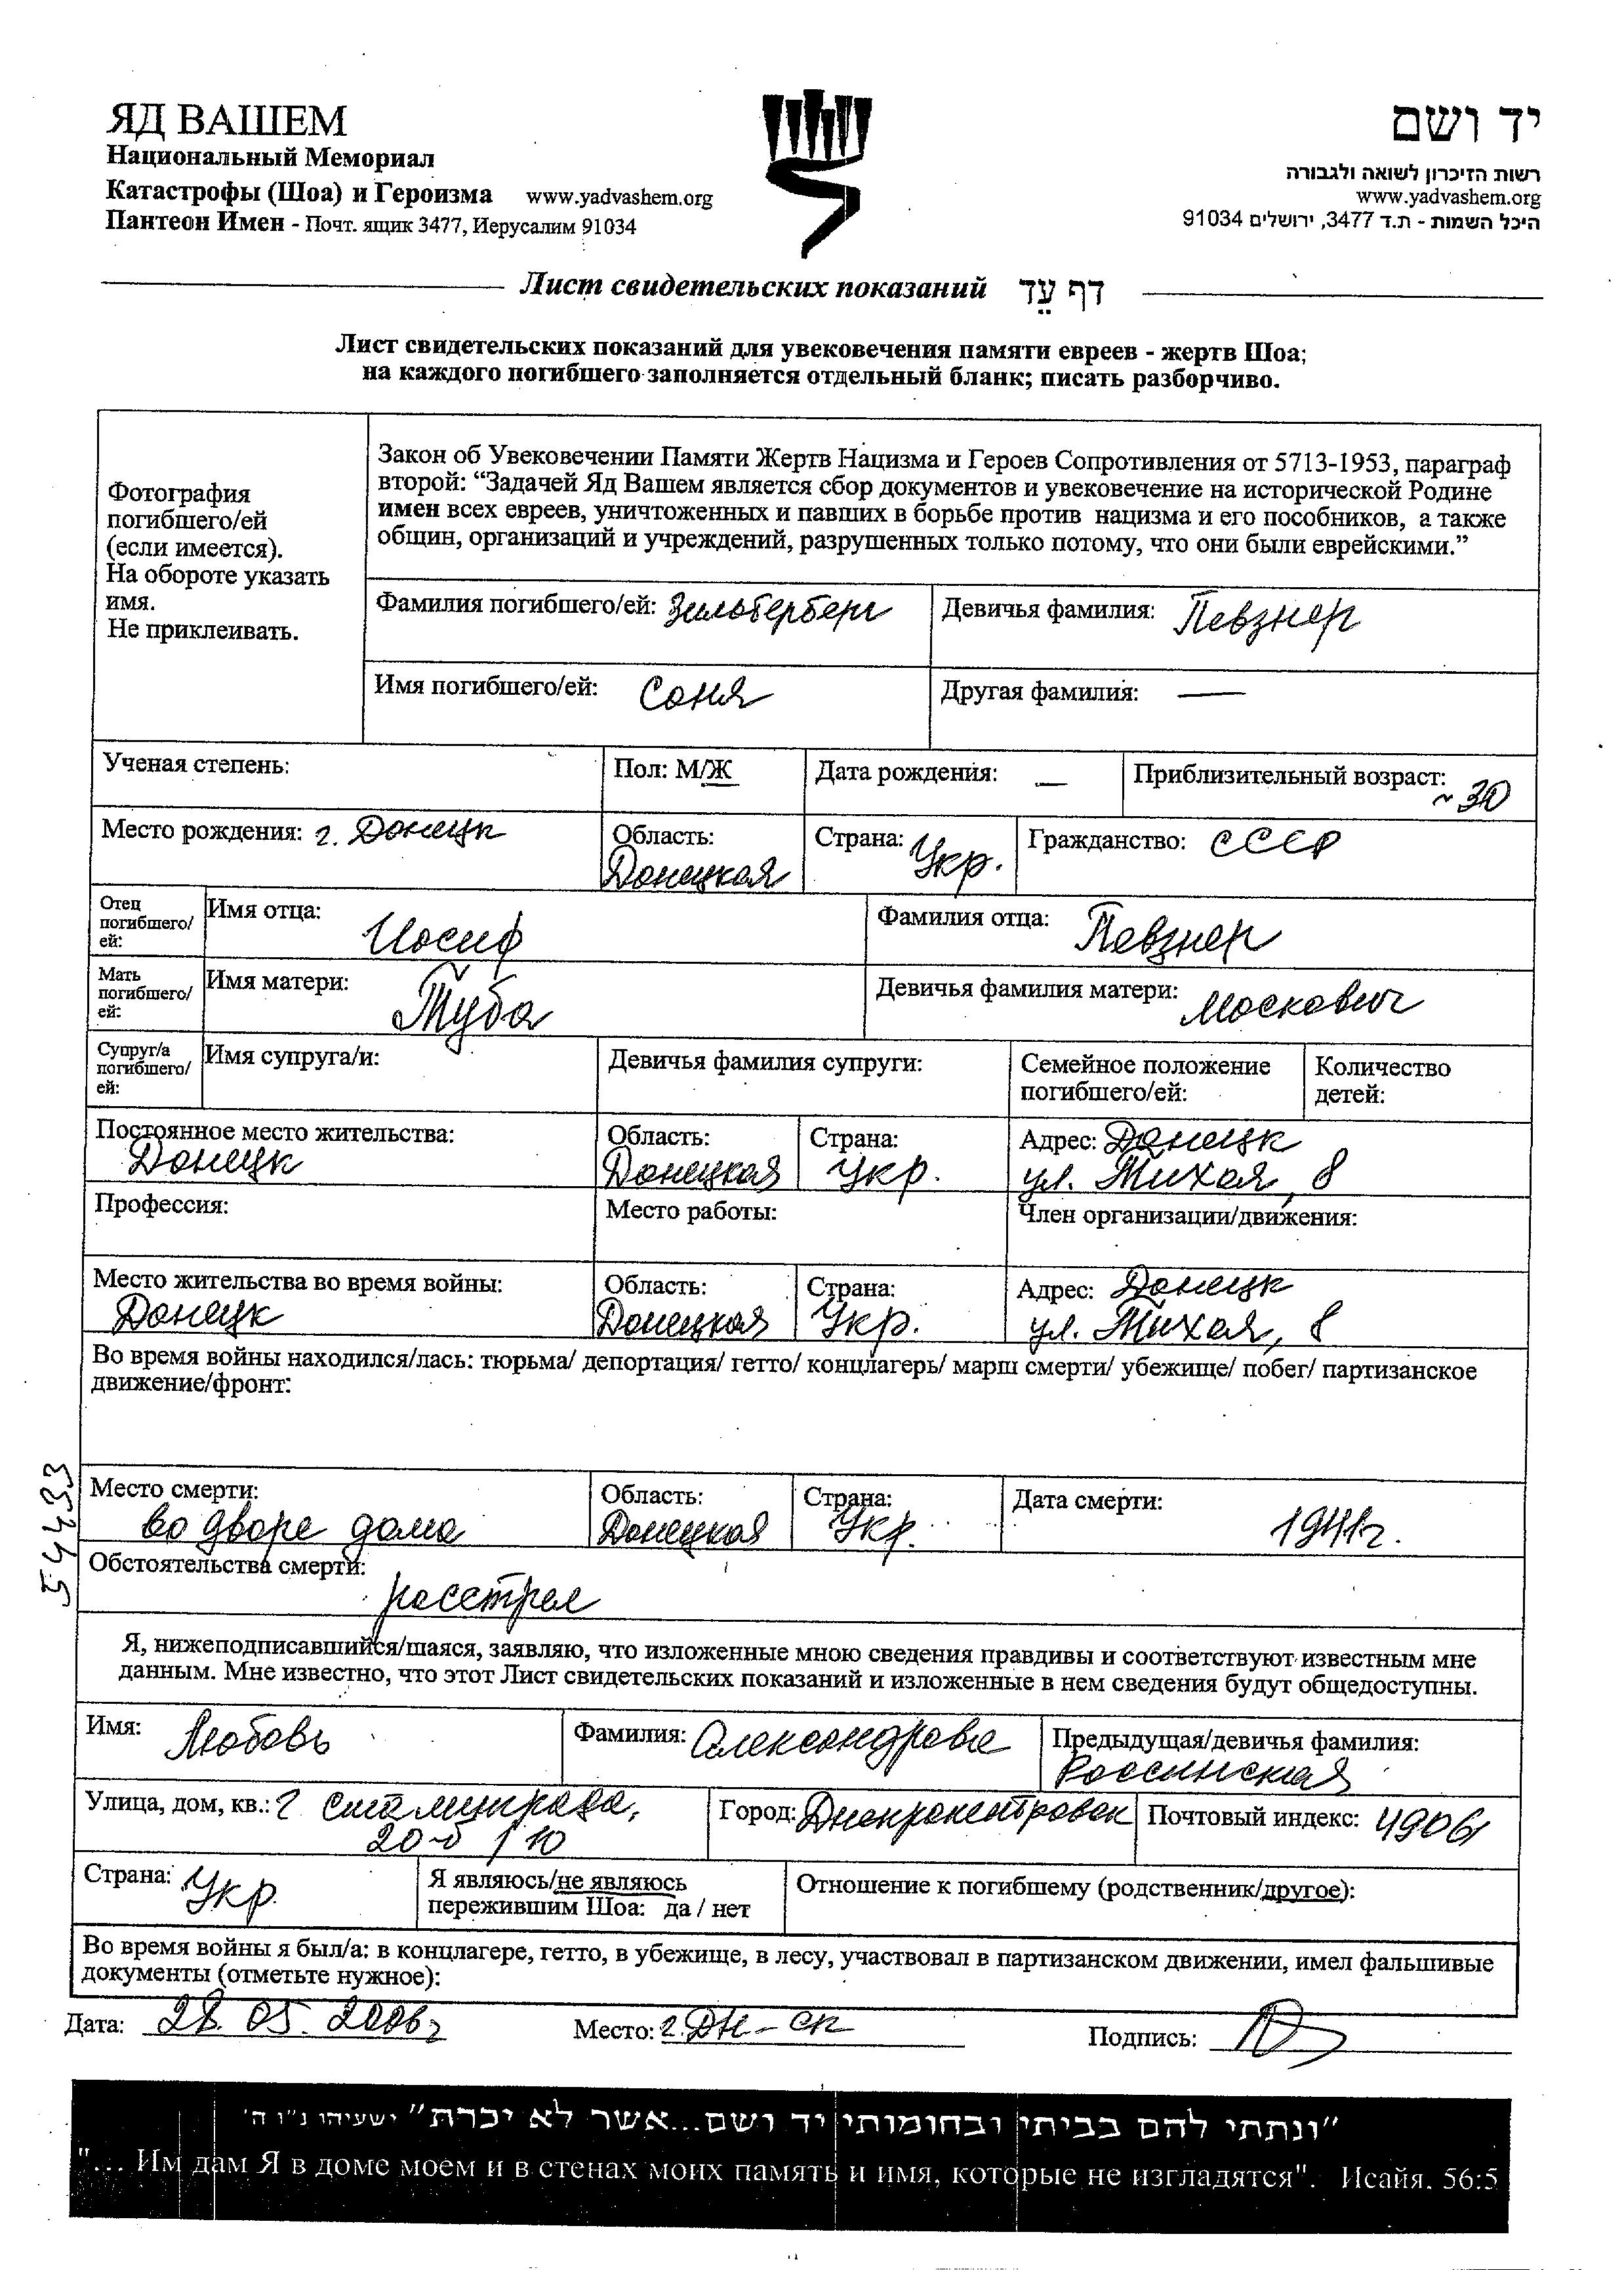 ЯД ВАШЕМ
Национальный Мемориал
Катастрофы (Шоа) и Героизма www.yadvashem.org
Пантеон Имен - Почт. ящик 3477, Иерусалим 91034
יד ושם
רשות הזיכרון לשואה ולגבורה
www.yadvashem.org
היכל השמות - ת.ד 3477, ירושלים 91034
Лист свидетельских показаний דף עֵד
Лист свидетельских показаний для увековечения памяти евреев - жертв Шоа;
на каждого погибшего заполняется отдельный бланк; писать разборчиво.
Фотография
погибшего/ей
(если имеется).
На обороте указать
имя.
Не приклеивать.
Закон об Увековечении Памяти Жертв Нацизма и Героев Сопротивления от 5713-1953, параграф
второй: “Задачей Яд Вашем является сбор документов и увековечение на исторической Родине
имен всех евреев, уничтоженных и павших в борьбе против нацизма и его пособников, а также
общин, организаций и учреждений, разрушенных только потому, что они были еврейскими.”
Фамилия погибшего/ей: Зильберберг
Девичья фамилия: Певзнер
Имя погибшего/ей: Соня
Другая фамилия: —
Ученая степень:
Пол: М/Ж
Дата рождения: —
Приблизительный возраст:
~30
Место рождения: г. Донецк
Область:
Донецкая
Страна: Укр.
Гражданство: СССР
Отец
погибшего/
ей:
Имя отца: Иосиф
Фамилия отца: Певзнер
Мать
погибшего/
ей:
Имя матери: Туба
Девичья фамилия матери: Москович
Супруг/а
погибшего/
ей:
Имя супруга/и:
Девичья фамилия супруги:
Семейное положение
погибшего/ей:
Количество
детей:
Постоянное место жительства:
Донецк
Область:
Донецкая
Страна:
Укр.
Адрес: Донецк
ул. Тихая, 8
Профессия:
Место работы:
Член организации/движения:
Место жительства во время войны:
Донецк
Область:
Донецкая
Страна:
Укр.
Адрес: Донецк
ул. Тихая, 8
Во время войны находился/лась: тюрьма/ депортация/ гетто/ концлагерь/ марш смерти/ убежище/ побег/ партизанское
движение/фронт:
54433
Место смерти:
во дворе дома
Область:
Донецкая
Страна:
Укр.
Дата смерти:
1941г.
Обстоятельства смерти:
расстрел
Я, нижеподписавшийся/шаяся, заявляю, что изложенные мною сведения правдивы и соответствуют известным мне
данным. Мне известно, что этот Лист свидетельских показаний и изложенные в нем сведения будут общедоступны.
Имя: Любовь
Фамилия: Александрова
Предыдущая/девичья фамилия:
Россинская
Улица, дом, кв.: г. Сталинграда,
20-б / 10
Город: Днепропетровск
Почтовый индекс: 49061
Страна: Укр.
Я являюсь/не являюсь
пережившим Шоа: да / нет
Отношение к погибшему (родственник/другое):
Во время войны я был/а: в концлагере, гетто, в убежище, в лесу, участвовал в партизанском движении, имел фальшивые
документы (отметьте нужное):
Дата: 28.05.2006г
Место: г. Дн-ск
Подпись:
"ונתתי להם בביתי ובחומותי יד ושם...אשר לא יכרת" ישעיהו נ"ו ה'
"... Им дам Я в доме моем и в стенах моих память и имя, которые не изгладятся". Исайя. 56:5